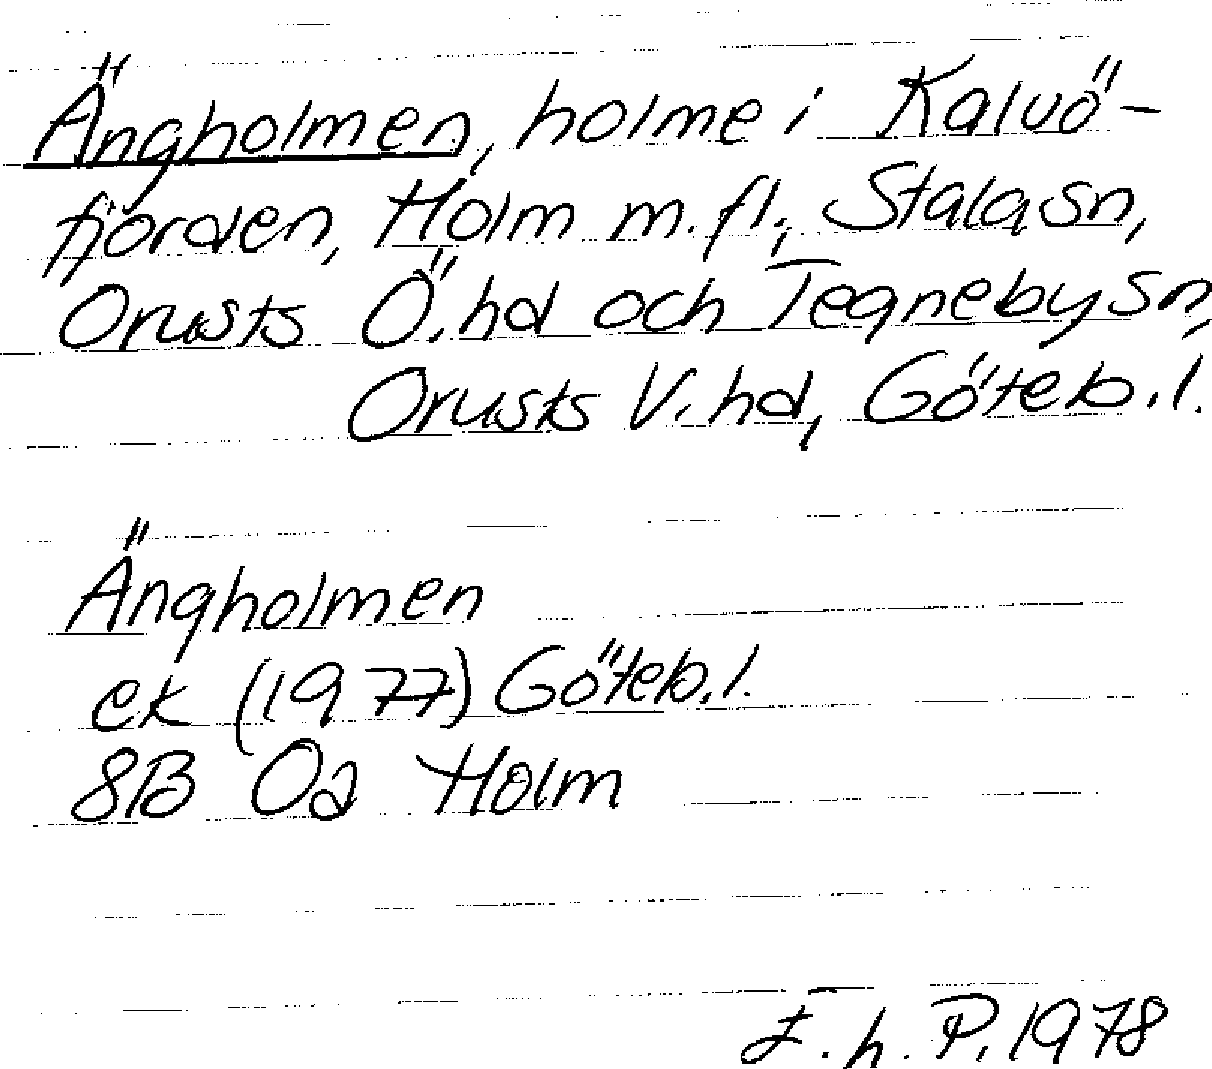 Ängholmen, holme i Kalvö-
fjorden, Holm m.fl., Stala sn,
Orusts Ö. hd och Tegneby sn,
Orusts V. hd, Göteb. l.
Ängholmen
ek (1977) Göteb. l.
8B 0a Holm
E. h. P. 1978